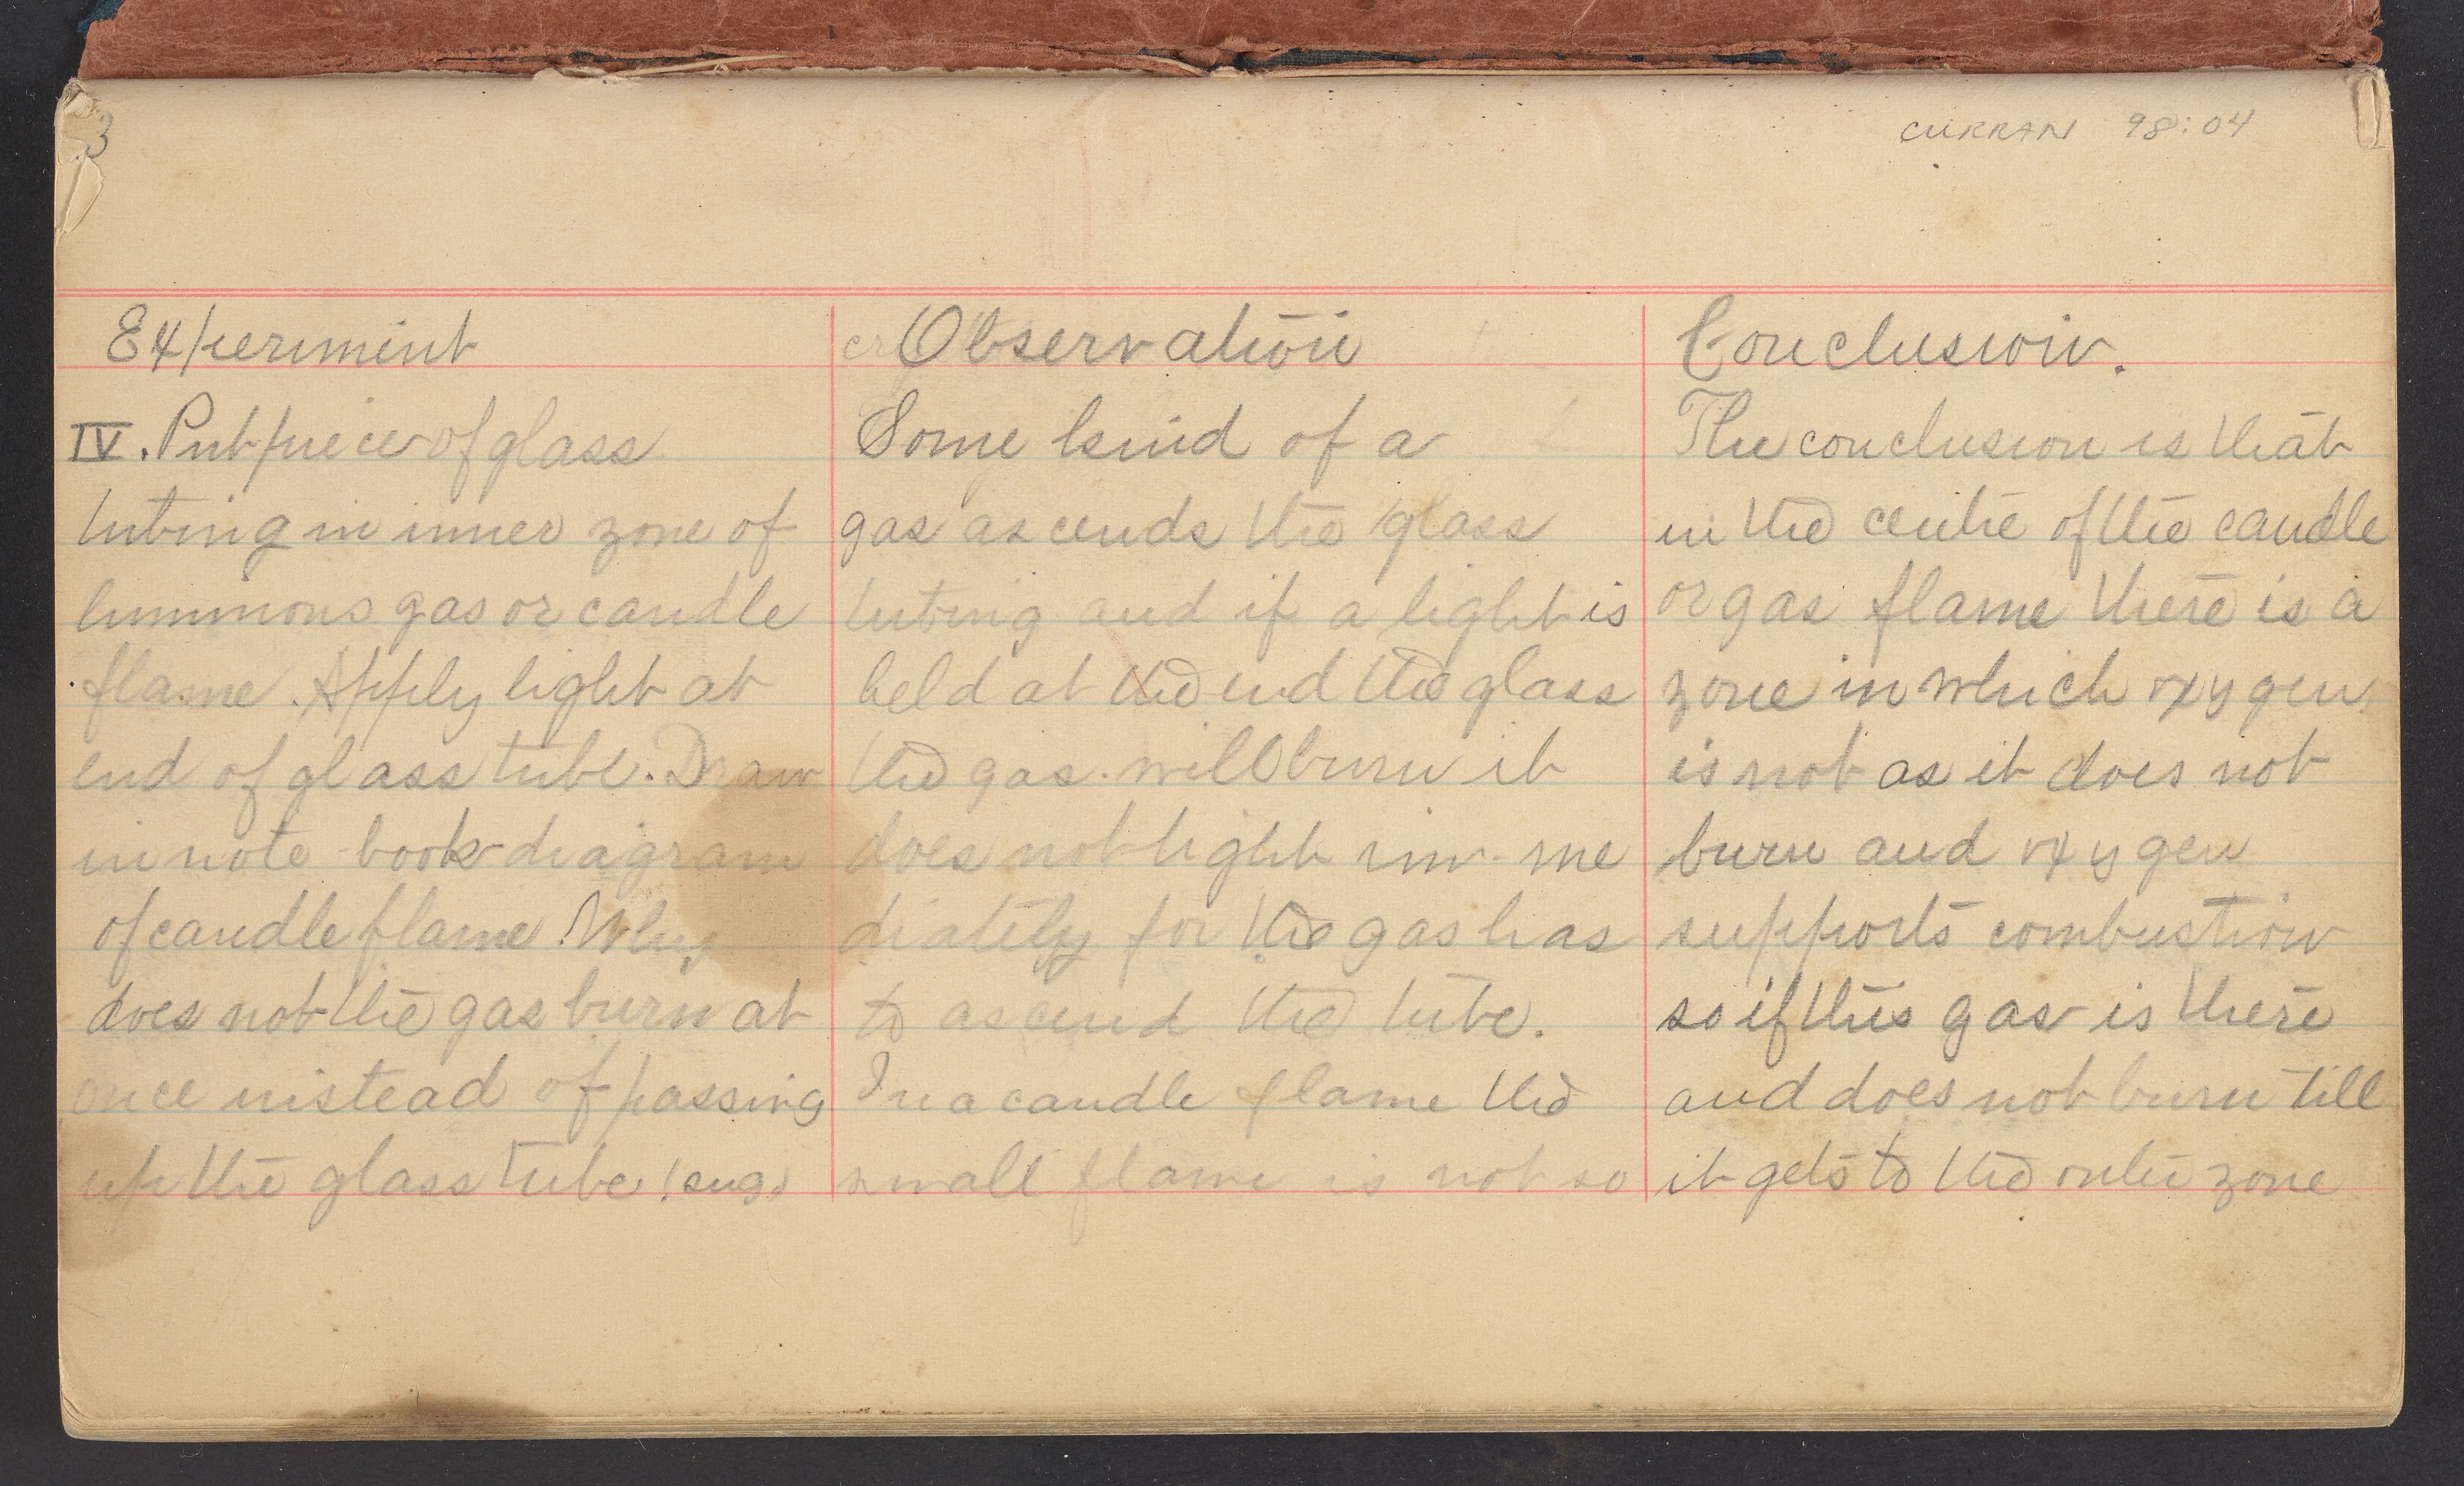 3
CURRAN 98:04
Experiment
IV. Put piece of glass
tubing in inner zone of
luminous gas or candle
flame. Apply light at
end of glass tube. Draw
in note book diagram
of candle flame. Why
does not the gas burn at
once instead of passing
up the glass tube
Observation
Some kind of a
gas ascends the glass
tubing and if a light is
held at the end the glass
the gas will burn it
does not light im-me
diately for the gas has
to ascend the tube.
In a candle flame the
small flame is not so
Conclusion.
The conclusion is that
in the centre of the candle
or gas flame there is a
zone in which oxygen
is not as it does not
burn and oxygen
supports combustion
so if this gas is there
and does not burn till
it gets to the outer zone